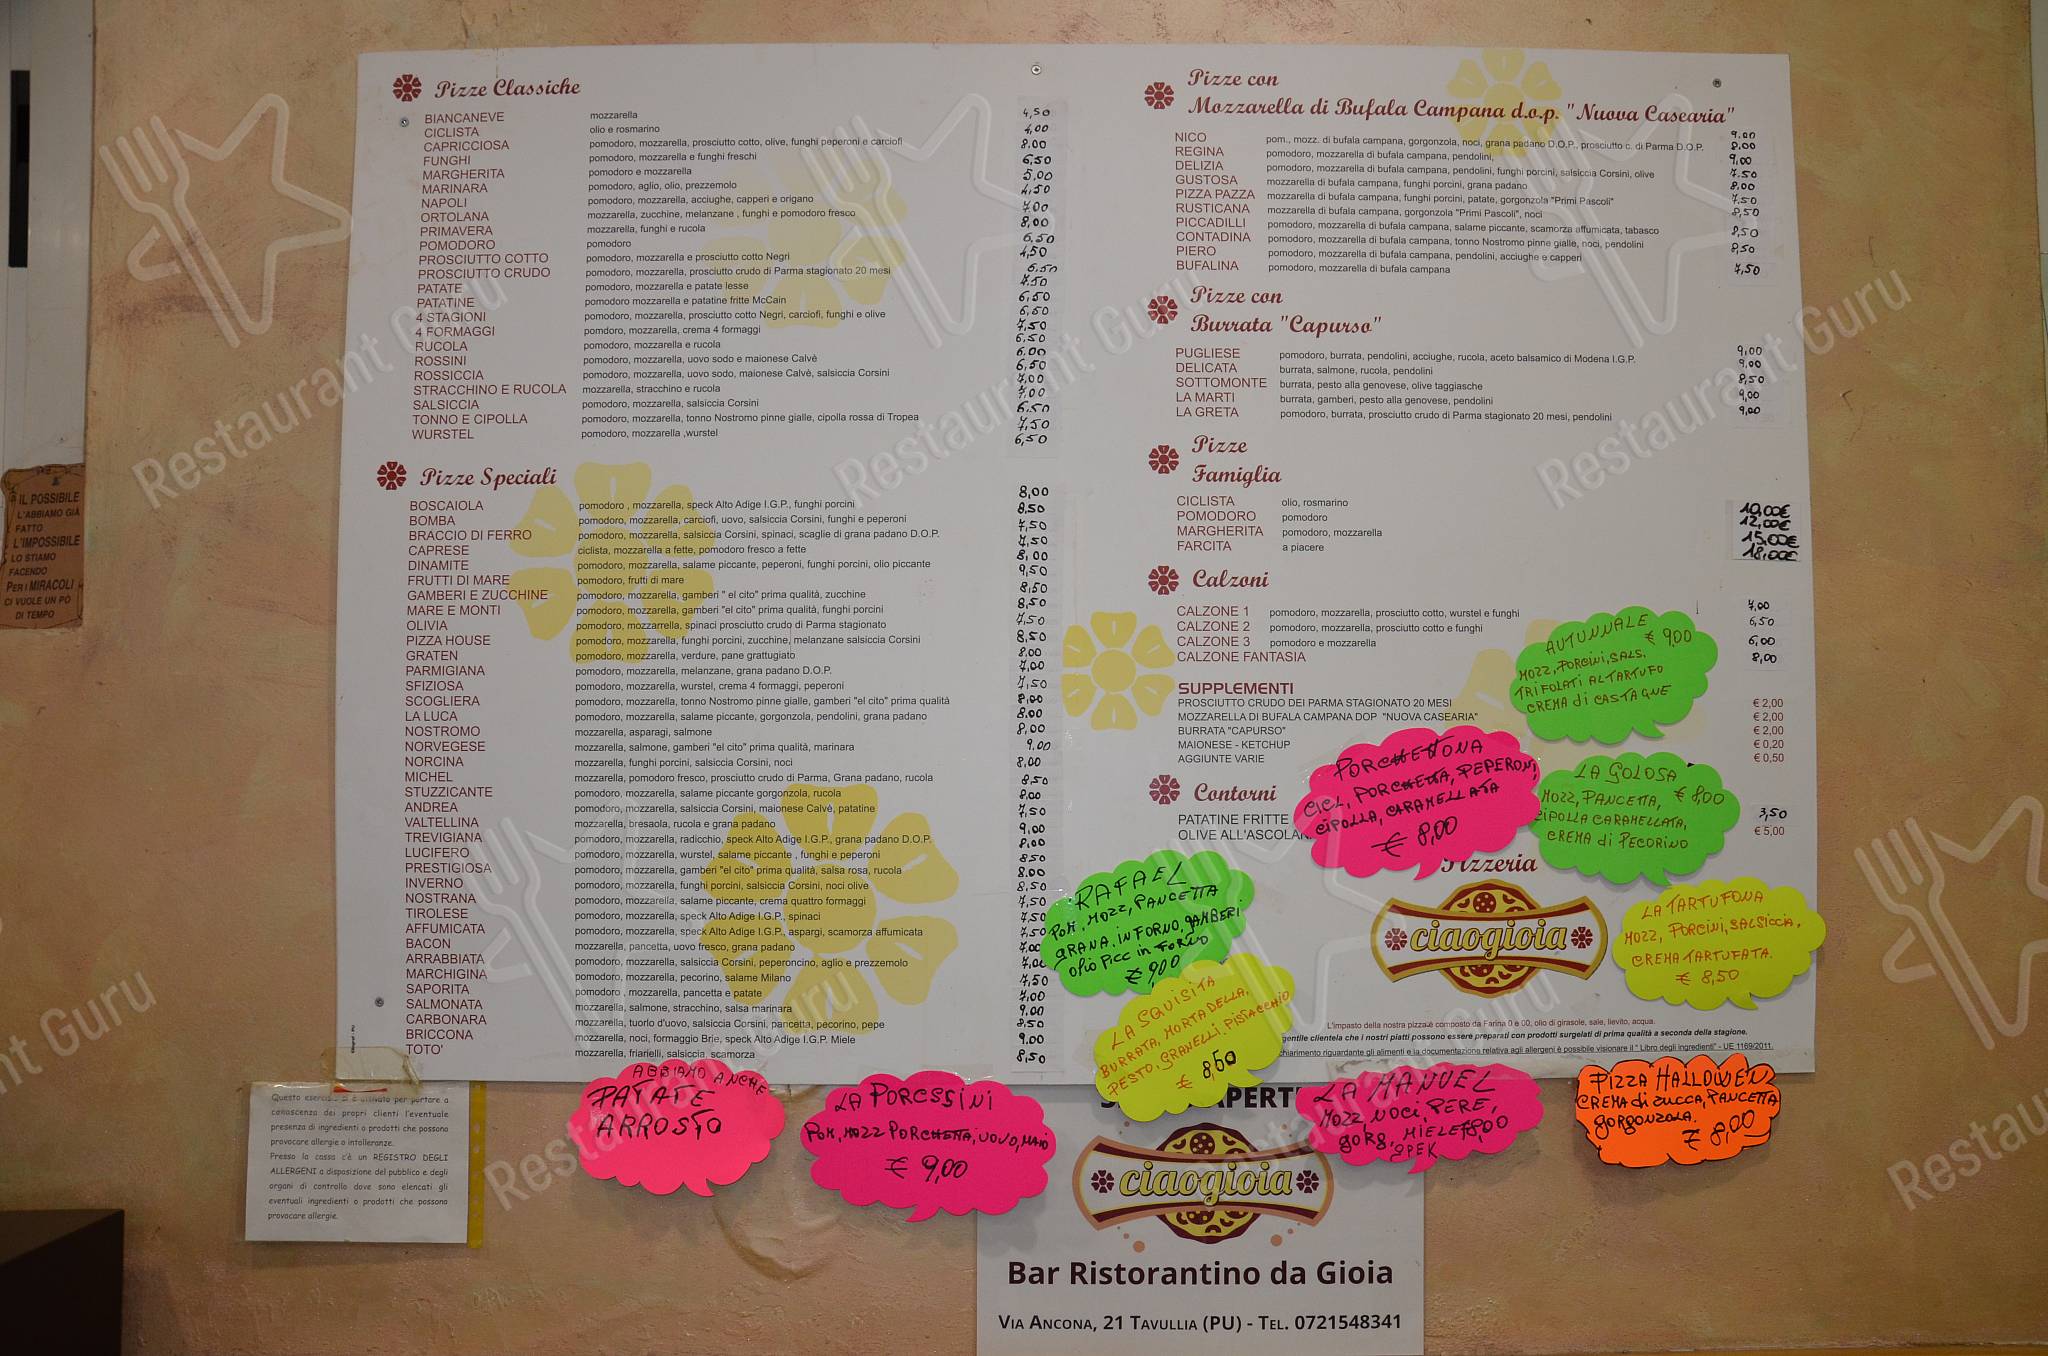 Pizze Classiche
BIANCANEVE mozzarella 4,50
CICLISTA olio e rosmarino 4,00
CAPRICCIOSA pomodoro, mozzarella, prosciutto cotto, olive, funghi peperoni e carciofi 8.00
FUNGHI pomodoro, mozzarella e funghi freschi 6,50
MARGHERITA pomodoro e mozzarella 5,00
MARINARA pomodoro, aglio, olio, prezzemolo 4,50
NAPOLI pomodoro, mozzarella, acciughe, capperi e origano 7,00
ORTOLANA mozzarella, zucchine, melanzane , funghi e pomodoro fresco 8,00
PRIMAVERA mozzarella, funghi e rucola 6,50
POMODORO pomodoro 4,50
PROSCIUTTO COTTO pomodoro, mozzarella e prosciutto cotto Negri 6,50
PROSCIUTTO CRUDO pomodoro, mozzarella, prosciutto crudo di Parma stagionato 20 mesi 7,50
PATATE pomodoro, mozzarella e patate lesse 6,50
PATATINE pomodoro mozzarella e patatine fritte McCain 6,50
4 STAGIONI pomodoro, mozzarella, prosciutto cotto Negri, carciofi, funghi e olive 7,50
4 FORMAGGI pomdoro, mozzarella, crema 4 formaggi 6,50
RUCOLA pomodoro, mozzarella e rucola 6,00
ROSSINI pomodoro, mozzarella, uovo sodo e maionese Calvè 6,50
ROSSICCIA pomodoro, mozzarella, uovo sodo, maionese Calvè, salsiccia Corsini 7,00
STRACCHINO E RUCOLA mozzarella, stracchino e rucola 7,00
SALSICCIA pomodoro, mozzarella, salsiccia Corsini 6,50
TONNO E CIPOLLA pomodoro, mozzarella, tonno Nostromo pinne gialle, cipolla rossa di Tropea 7,50
WURSTEL pomodoro, mozzarella ,wurstel 6,50
Pizze Speciali
BOSCAIOLA pomodoro , mozzarella, speck Alto Adige I.G.P., funghi porcini 8,00
BOMBA pomodoro, mozzarella, carciofi, uovo, salsiccia Corsini, funghi e peperoni 8,50
BRACCIO DI FERRO pomodoro, mozzarella, salsiccia Corsini, spinaci, scaglie di grana padano D.O.P. 7,50
CAPRESE ciclista, mozzarella a fette, pomodoro fresco a fette 7,50
DINAMITE pomodoro, mozzarella, salame piccante, peperoni, funghi porcini, olio piccante 8,00
FRUTTI DI MARE pomodoro, frutti di mare 9,50
GAMBERI E ZUCCHINE pomodoro, mozzarella, gamberi " el cito" prima qualità, zucchine 8,50
MARE E MONTI pomodoro, mozzarella, gamberi "el cito" prima qualità, funghi porcini 8,50
OLIVIA pomodoro, mozzarella, spinaci prosciutto crudo di Parma stagionato 7,50
PIZZA HOUSE pomodoro, mozzarella, funghi porcini, zucchine, melanzane salsiccia Corsini 8,50
GRATEN pomodoro, mozzarella, verdure, pane grattugiato 8,00
PARMIGIANA pomodoro, mozzarella, melanzane, grana padano D.O.P. 7,00
SFIZIOSA pomodoro, mozzarella, wurstel, crema 4 formaggi, peperoni 7,50
SCOGLIERA pomodoro, mozzarella, tonno Nostromo pinne gialle, gamberi "el cito" prima qualità 8,00
LA LUCA pomodoro, mozzarella, salame piccante, gorgonzola, pendolini, grana padano 8,00
NOSTROMO mozzarella, asparagi, salmone 8,00
NORVEGESE mozzarella, salmone, gamberi "el cito" prima qualità, marinara 9,00
NORCINA mozzarella, funghi porcini, salsiccia Corsini, noci 8,00
MICHEL mozzarella, pomodoro fresco, prosciutto crudo di Parma, Grana padano, rucola 8,50
STUZZICANTE pomodoro, mozzarella, salame piccante gorgonzola, rucola 8,00
ANDREA pomodoro, mozzarella, salsiccia Corsini, maionese Calvè, patatine 7,50
VALTELLINA mozzarella, bresaola, rucola e grana padano 9,00
TREVIGIANA pomodoro, mozzarella, radicchio, speck Alto Adige I.G.P., grana padano D.O.P. 8,00
LUCIFERO pomodoro, mozzarella, wurstel, salame piccante , funghi e peperoni 8,50
PRESTIGIOSA pomodoro, mozzarella, gamberi "el cito" prima qualità, salsa rosa, rucola 8,00
INVERNO pomodoro, mozzarella, funghi porcini, salsiccia Corsini, noci olive 8,50
NOSTRANA pomodoro, mozzarella, salame piccante, crema quattro formaggi 7,50
TIROLESE pomodoro, mozzarella, speck Alto Adige I.G.P., spinaci 7,50
AFFUMICATA pomodoro, mozzarella, speck Alto Adige I.G.P., aspargi, scamorza affumicata 7,50
BACON mozzarella, pancetta, uovo fresco, grana padano 7,00
ARRABBIATA pomodoro, mozzarella, salsiccia Corsini, peperoncino, aglio e prezzemolo 7,00
MARCHIGINA pomodoro, mozzarella, pecorino, salame Milano 7,50
SAPORITA pomodoro , mozzarella, pancetta e patate 7,00
SALMONATA mozzarella, salmone, stracchino, salsa marinara 9,00
CARBONARA mozzarella, tuorlo d'uovo, salsiccia Corsini, pancetta, pecorino, pepe 8,50
BRICCONA mozzarella, noci, formaggio Brie, speck Alto Adige I.G.P. Miele 9,00
TOTO' mozzarella, friarielli, salsiccia, scamorza 8,50
Pizze con
Mozzarella di Bufala Campana d.o.p. "Nuova Casearia"
NICO pom., mozz. di bufala campana, gorgonzola, noci, grana padano D.O.P., prosciutto c. di Parma D.O.P. 9,00
REGINA pomodoro, mozzarella di bufala campana, pendolini, 8,00
DELIZIA pomodoro, mozzarella di bufala campana, pendolini, funghi porcini, salsiccia Corsini, olive 9,00
GUSTOSA mozzarella di bufala campana, funghi porcini, grana padano 7,50
PIZZA PAZZA mozzarella di bufala campana, funghi porcini, patate, gorgonzola "Primi Pascoli" 8,00
RUSTICANA mozzarella di bufala campana, gorgonzola "Primi Pascoli", noci 7,50
PICCADILLI pomodoro, mozzarella di bufala campana, salame piccante, scamorza affumicata, tabasco 8,50
CONTADINA pomodoro, mozzarella di bufala campana, tonno Nostromo pinne gialle, noci, pendolini 8,50
PIERO pomodoro, mozzarella di bufala campana, pendolini, acciughe e capperi 8,50
BUFALINA pomodoro, mozzarella di bufala campana 7,50
Pizze con
Burrata "Capurso"
PUGLIESE pomodoro, burrata, pendolini, acciughe, rucola, aceto balsamico di Modena I.G.P. 9,00
DELICATA burrata, salmone, rucola, pendolini 9,00
SOTTOMONTE burrata, pesto alla genovese, olive taggiasche 8,50
LA MARTI burrata, gamberi, pesto alla genovese, pendolini 9,00
LA GRETA pomodoro, burrata, prosciutto crudo di Parma stagionato 20 mesi, pendolini 9,00
Pizze
Famiglia
CICLISTA olio, rosmarino 10,00€
POMODORO pomodoro 12,00€
MARGHERITA pomodoro, mozzarella 15,00€
FARCITA a piacere 18,00€
Calzoni
CALZONE 1 pomodoro, mozzarella, prosciutto cotto, wurstel e funghi 7,00
CALZONE 2 pomodoro, mozzarella, prosciutto cotto e funghi 6,50
CALZONE 3 pomodoro e mozzarella 6,00
CALZONE FANTASIA 8,00
SUPPLEMENTI
PROSCIUTTO CRUDO DEI PARMA STAGIONATO 20 MESI € 2,00
MOZZARELLA DI BUFALA CAMPANA DOP "NUOVA CASEARIA" € 2,00
BURRATA "CAPURSO" € 2,00
MAIONESE - KETCHUP € 0,20
AGGIUNTE VARIE € 0,50
Contorni
PATATINE FRITTE 3,50
OLIVE ALL'ASCOLAN € 5,00
AUTUNNALE
€ 9,00
MOZZ, PORCINI, SALS.
TRIFOLATI AL TARTUFO
CREMA di CASTAGNE
PORCHETTONA
CICL, PORCHETTA, PEPERONI,
CIPOLLA, CARAMELLATA
€ 8,00
LA GOLOSA
MOZZ, PANCETTA, € 8,00
CIPOLLA CARAMELLATA,
CREMA di PECORINO
RAFAEL
POM, MOZZ, PANCETTA
GRANA, IN FORNO, GAMBERI.
OLIO PICC IN FORNO
€ 9,00
LA SQUISITA
BURRATA, MORTADELLA,
PESTO, GRANELLI PISTACCHIO
€ 8,50
Pizzeria
ciaogioia
LA TARTUFONA
MOZZ, PORCINI, SALSICCIA,
CREMA TARTUFATA.
€ 8,50
L'impasto della nostra pizza è composto da Farina 0 e 00, olio di girasole, sale, lievito, acqua.
gentile clientela che i nostri piatti possono essere preparati con prodotti surgelati di prima qualità a seconda della stagione.
chiarimento riguardante gli alimenti e la documentazione relativa agli allergeni è possibile visionare il " Libro degli ingredienti" - UE 1169/2011.
ABBIAMO ANCHE
PATATE
ARROSTO
LA PORESSINI
POM, MOZZ PORCHETTA, UOVO, MAIO
€ 9,00
LA MANUEL
MOZZ, NOCI, PERE,
GORG, MIELE € 8,00
SPEK
PIZZA HALLOWEN
CREMA di ZUCCA, PANCETTA
gorgonzola.
€ 8,00
APERTI
ciaogioia
Bar Ristorantino da Gioia
VIA ANCONA, 21 TAVULLIA (PU) - TEL. 0721548341
IL POSSIBILE
L'ABBIAMO GIÀ
FATTO
L'IMPOSSIBILE
LO STIAMO
FACENDO
PER I MIRACOLI
CI VUOLE UN PÒ
DI TEMPO
Questo a portare a
conoscenza dei propri clienti l'eventuale
presenza di ingredienti o prodotti che possono
provocare allergie o intolleranze.
Presso la cassa c'è un REGISTRO DEGLI
ALLERGENI a disposizione del pubblico e degli
organi di controllo dove sono elencati gli
eventuali ingredienti o prodotti che possono
provocare allergie.
Restaurant Guru
Restaurant Guru
Restaurant Guru
Restaurant Guru
Restaurant Guru
Restaurant Guru